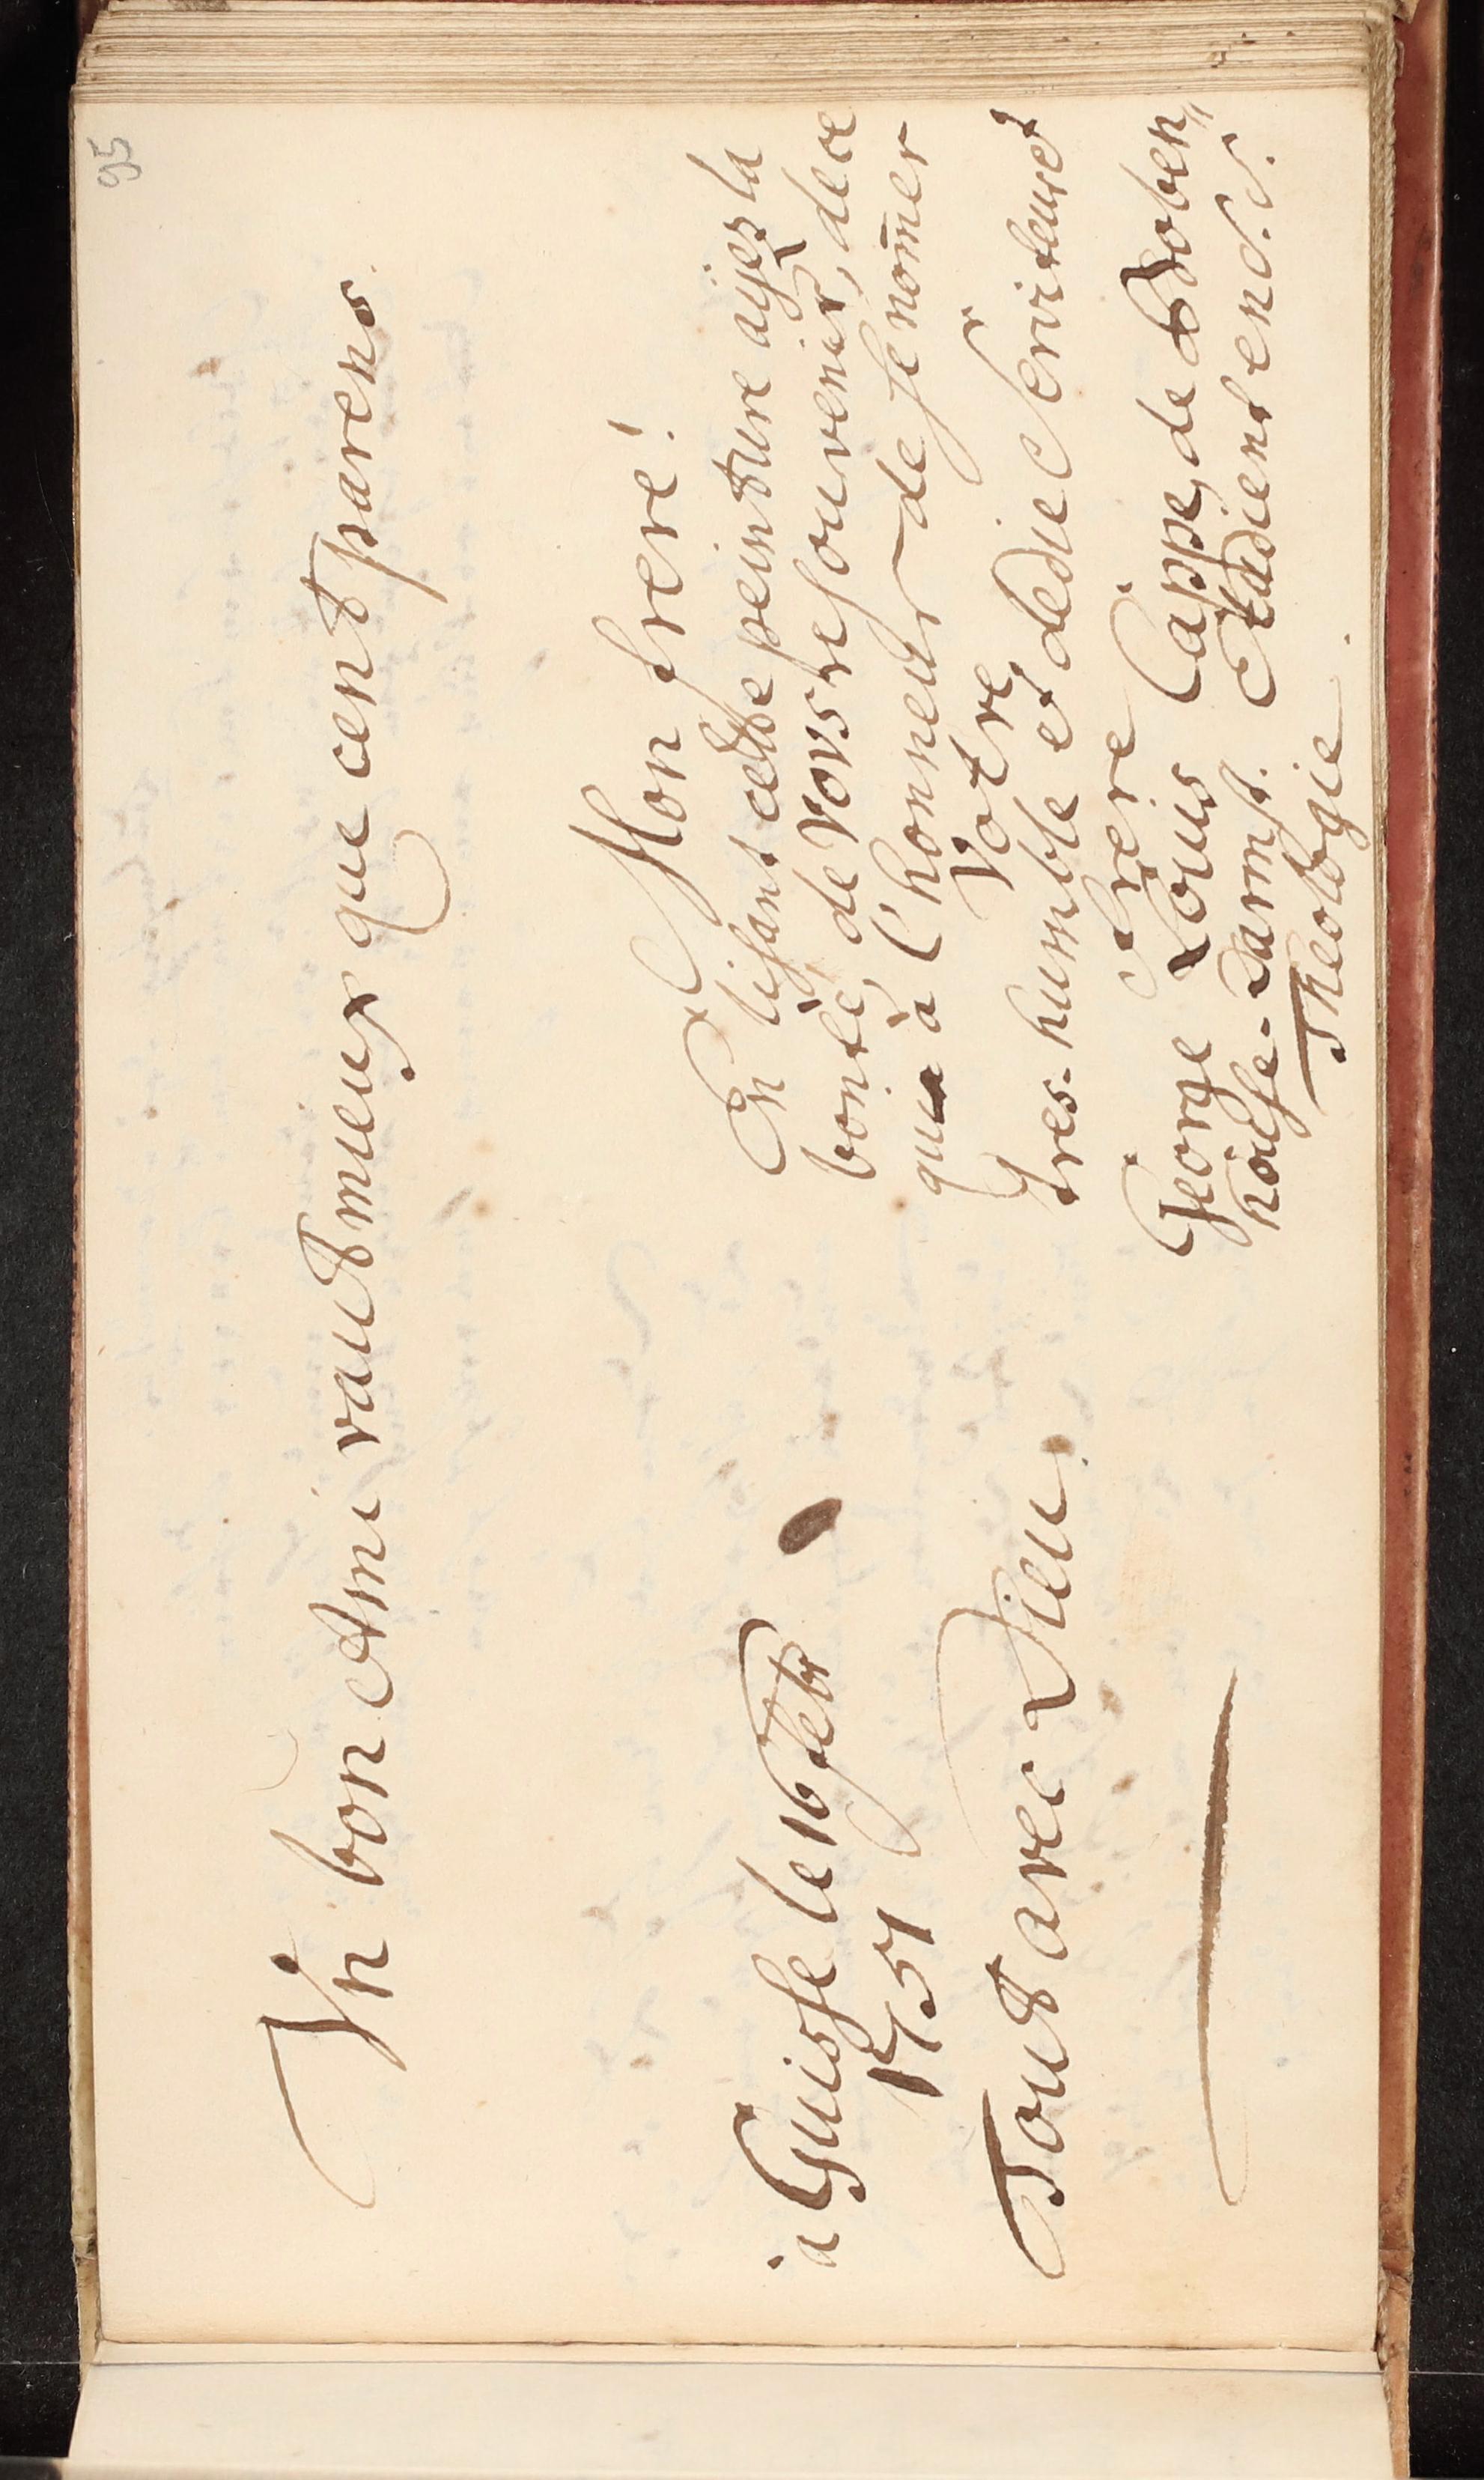 95
Vn bon Ami vaut mieux que cent parens.
Mon frere!
En lisant cette peinture ayés la
bonté, de Vous resouvenir, de ce
qui à l'honneur de se nom̄er
Votre
tres-humble et dedié Serviteur et
frere
George Louis Cappe, de Boben„
house-Darmst. Etudient en S. S.
Theologie.
à Guisse le 16 febr
1751
Tout avec Dieu.